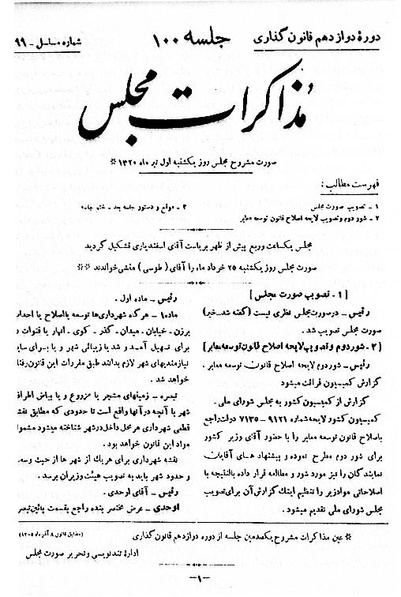 دورهٔ دوازدهم قانون گذاری
جلسه ۱۰۰
شماره مسلسل - ۹۹
مذاکرات مجلس
صورت مشروح مجلس روز یکشنبه اول تیر ماه ۱۳۲۰ *
فهرست مطالب :
۱ - تصویب صورت مجلس
۲ - شور دوم و تصویب لایحه اصلاح قانون توسعه معابر
۳ - موقع و دستور جلسه بعد - ختم جلسه
مجلس یکساعت و ربع پیش از ظهر بریاست آقای اسفندیاری تشکیل گردید
صورت مجلس روز یکشنبه ۲۵ خرداد ماه را آقای ( طوسی ) منشی خواندند **
[ ۱ - تصویب صورت مجلس ]
رئیس - در صورت مجلس نظری نیست ( گفته شد - خیر )
صورت مجلس تصویب شد .
[ ۲ - شور دوم و تصویب لایحه اصلاح قانون توسعه معابر ]
رئیس - شور دوم لایحه اصلاح قانون توسعه معابر .
گزارش کمیسیون قرائت میشود
گزارش از کمیسیون کشور به مجلس شورای ملی .
کمیسیون کشور لایحه شماره ۹۱۲۱ - ۷۱۳۵ دولت راجع
باصلاح قانون توسعه معابر را با حضور آقای وزیر کشور
برای شور دوم مطرح نموده و پیشنهاد های آقایان
نمایندگان را نیز مورد شور و مطالعه قرار داده بالنتیجه با
اصلاحاتی مواد زیر را تنظیم اینک گزارش آن برای تصویب
مجلس شورای ملی تقدیم میشود .
رئیس - ماده اول .
ماده ۱ - هر گاه شهرداری‌ها توسعه یا اصلاح یا احداث
برزن - خیابان - میدان - گذر - کوی - انهار یا قنوات
برای تسهیل آمد و شد یا زیبائی شهر و یا برای سایر
نیازمندیهای شهر لازم بدانند طبق مقررات این قانون رفتار
خواهد شد .
تبصره - زمینهای مشجر یا مزروع و یا بیاض اطراف
شهر یا آنچه در آنها واقع است تا حدودی که مطابق نقشه
قطعی شهرداری هر محل داخل در شهر شناخته میشود مشمول
مواد این قانون خواهد بود .
نقشه شهرداری برای هر یک از شهر ها از حیث وسعت
و حدود شهر باید به تصویب هیئت وزیران برسد .
رئیس - آقای اوحدی .
اوحدی - عرض مختصر بنده راجع بقسمت پائین تبصره
* عین مذاکرات مشروح یکصدمین جلسه از دوره دوازدهم قانون گذاری
(مطابق قانون ۸ آذرماه ۱۳۰۵)
ادارهٔ تندنویسی و تحریر صورت مجلس
-۱-